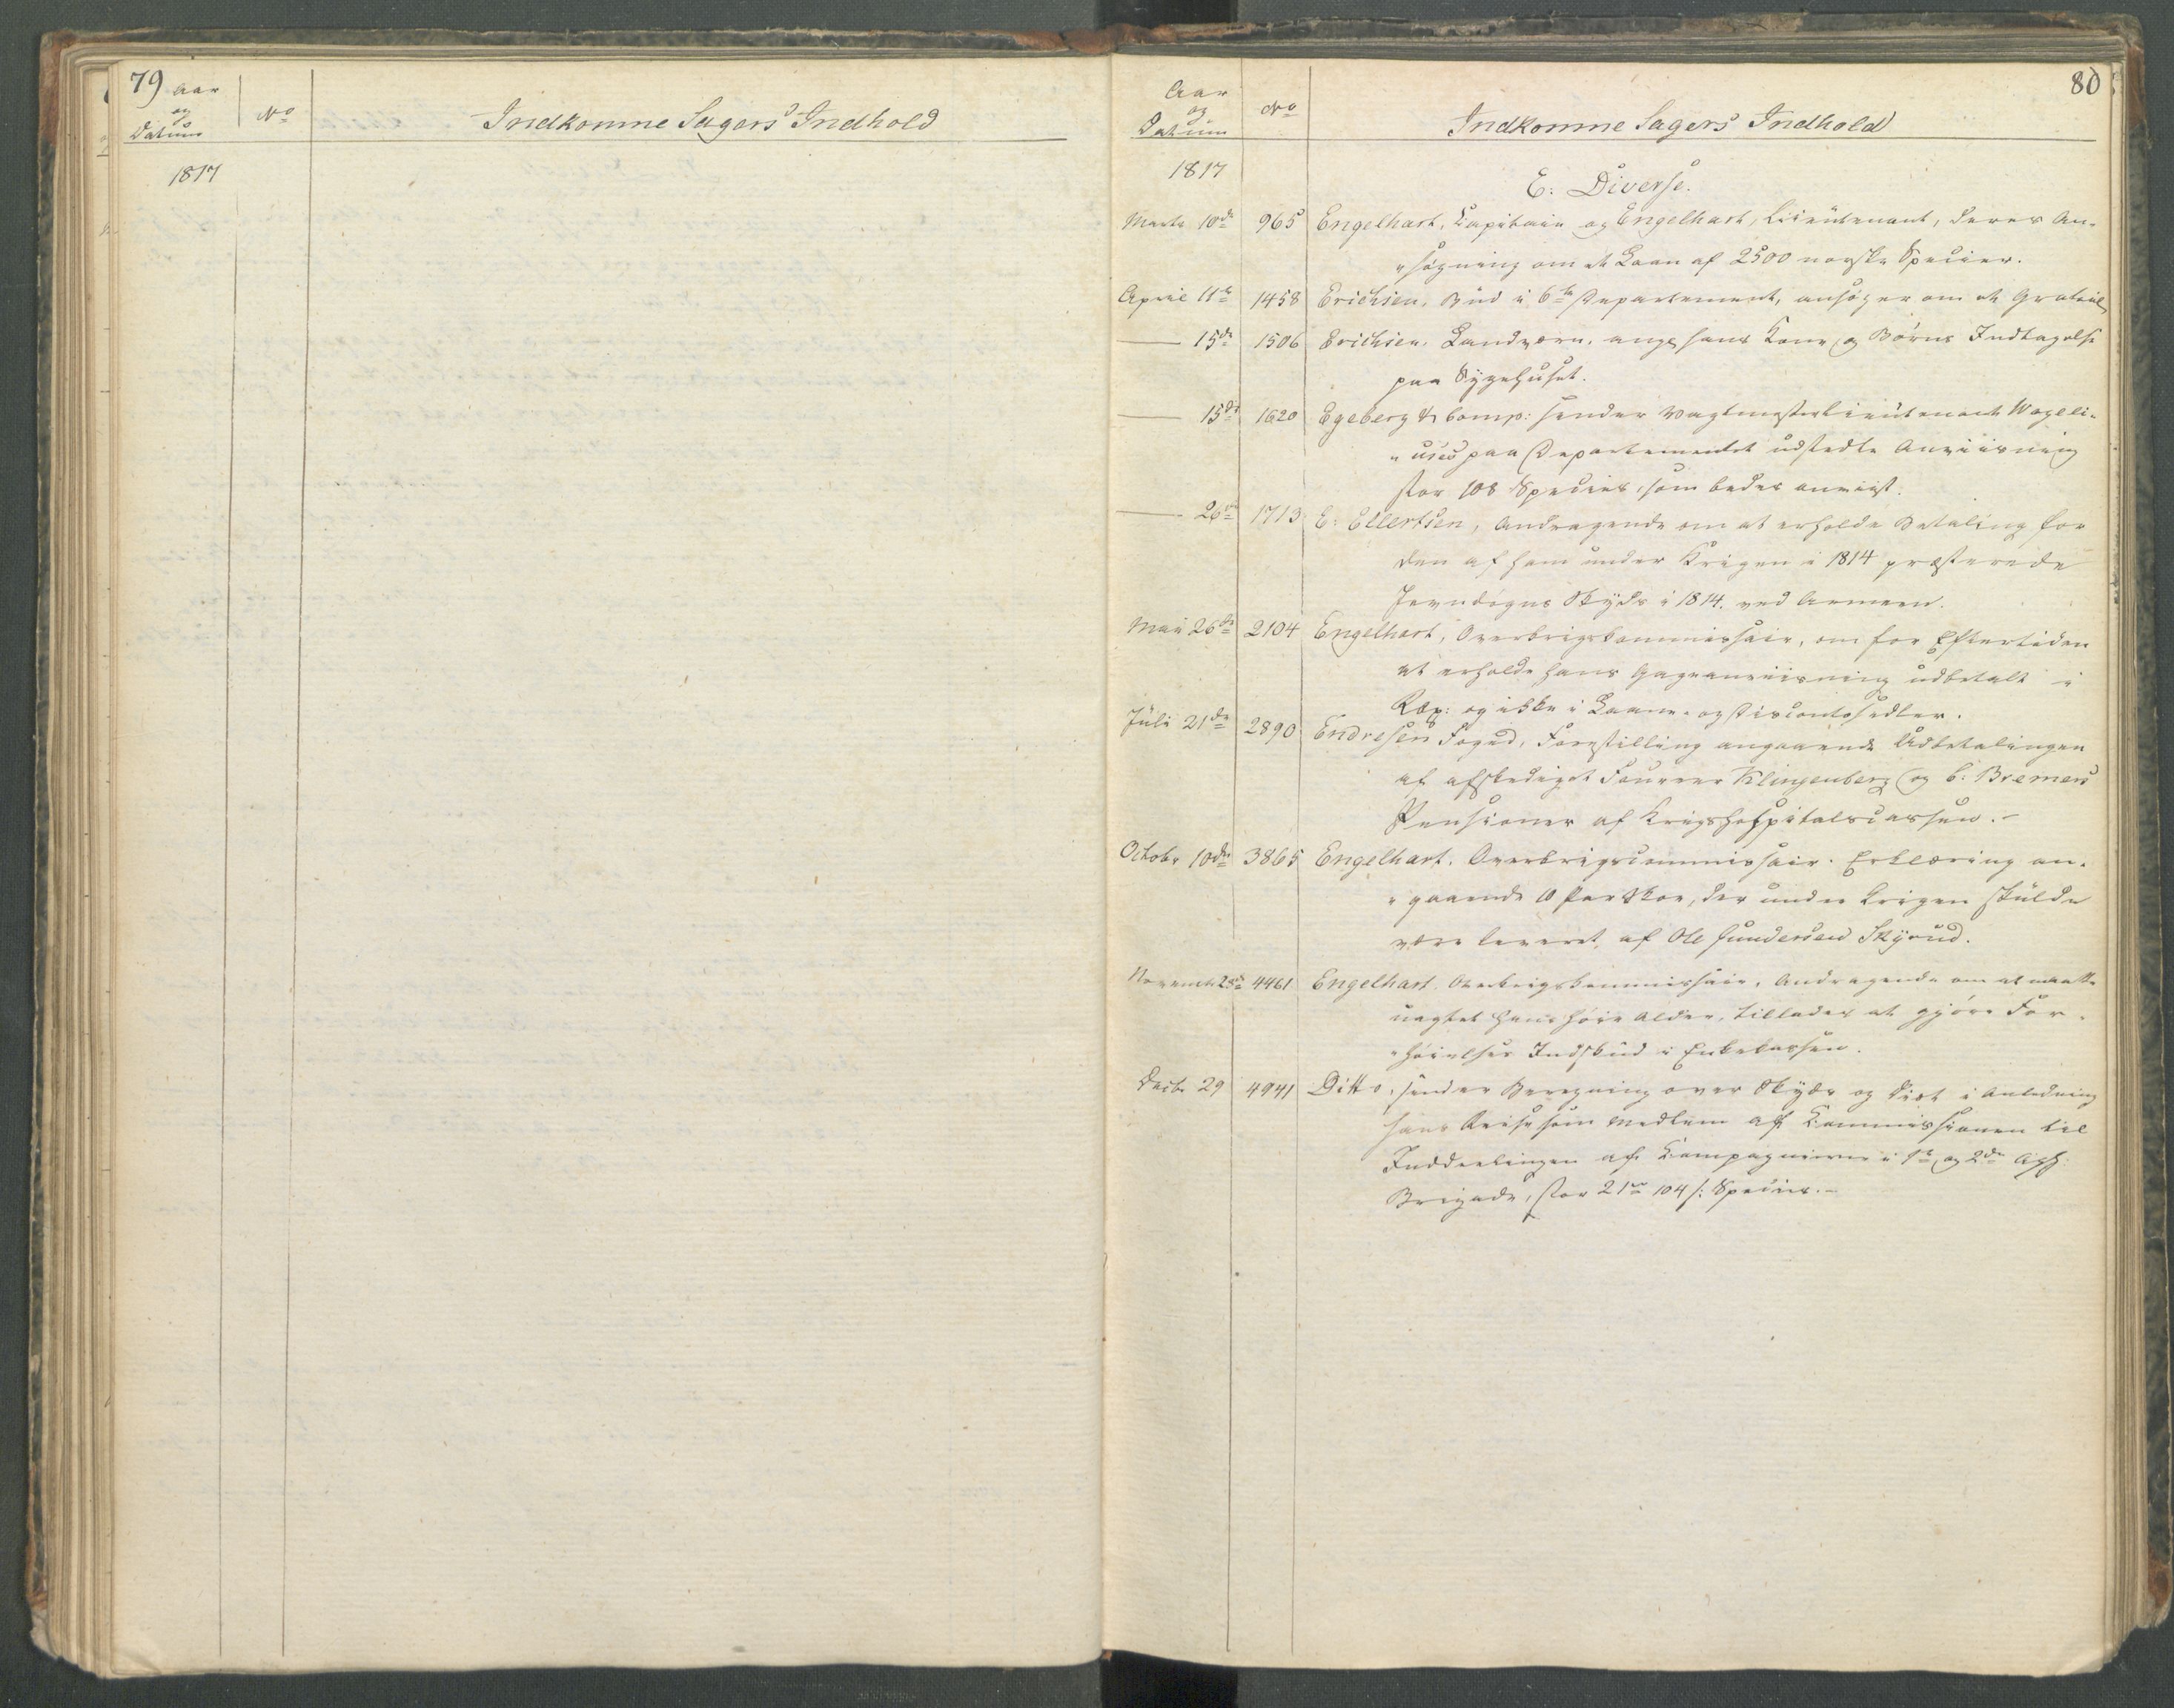 79 Aar
og
Datum
No
Indkomne Sagers Indhold
1817
80
Aar
og
Datum
No
Indkomne Sagers Indhold
1817
E. Diverse.
Marts 10de 965 Engelhart, Capitain og Engelhart, Lieutenant, deres An-
"søgning om et Laan af 2500 norske Specier.
April 11te 1458 Erichsen, Bud i 6te Departement, ansøger om et Gratial
— 15de 1506 Erichsen, Landværn, angl hans Kone og Børns Indtagelse
paa Sygehuset.
— 15de 1620 Egeberg & Comp: sender Vagtmesterlieutenant Wageli-
"uses paa Departementet udstedte Anviisning
stor 108 Species, som bedes anviist.
— 26de 1713 E: Ellertsen, Andragende om at erholde Betaling for
den af ham under Krigen i 1814 præsterede
Jevndøgns Skyds i 1814. ved Armeen.
Mai 26de 2104 Engelhart, Overkrigskommissair, om for Eftertiden
at erholde hans Gageanviisning udbetalt i
Rbp: og ikke i Laane- og Discontosedler.
Juli 21de 2890 Endresen Foged, Forestilling angaaende Udbetalingen
af afskediget Foureer Klingenberg og C: Bremers
Pensioner af Krigshospitalscassen.-
Octobr 10de 3865 Engelhart, Overkrigscommissair. Erklæring an-
"gaaende 10 Par Skoe, der under Krigen skulde
være leveret af Ole Gundersen Skjørud.
Novemb 28de 4461 Engelhart, Overkrigskommissair, Andragende om at maatte
uagtet hans høie Alder, tillades at gjøre For-
"høielses Indskud i Enkekassen.
Decbr 29 4941 Ditto, sender Beregning over Skyds og Diæt i Anledning
hans Reise som Medlem af Kommissionen til
Inddeelingen af Kompagnierne i 1te og 2de Aggh
Brigade, stor 21 104 s: Species.-